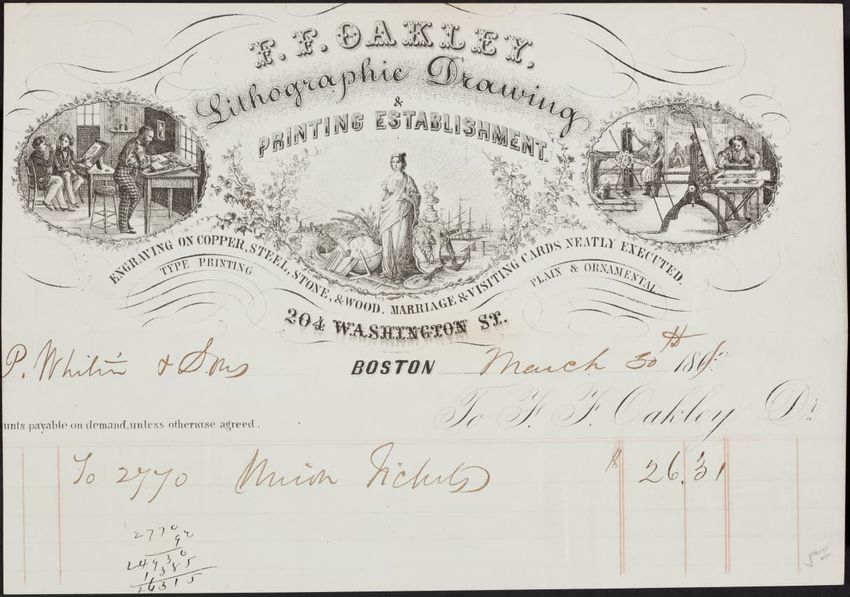 F. F. OAKLEY,
Lithographic Drawing
&
PRINTING ESTABLISHMENT.
ENGRAVING ON COPPER, STEEL, STONE, & WOOD. MARRIAGE & VISITING CARDS NEATLY EXECUTED.
TYPE PRINTING
PLAIN & ORNAMENTAL
204 WASHINGTON ST.
P. Whitin & Sons
BOSTON March 30th 186
unts payable on demand, unless otherwise agreed.
To F. F. Oakley Dr
To 2770 Union Tickets $ 26.31
2770
24930
1385
26315